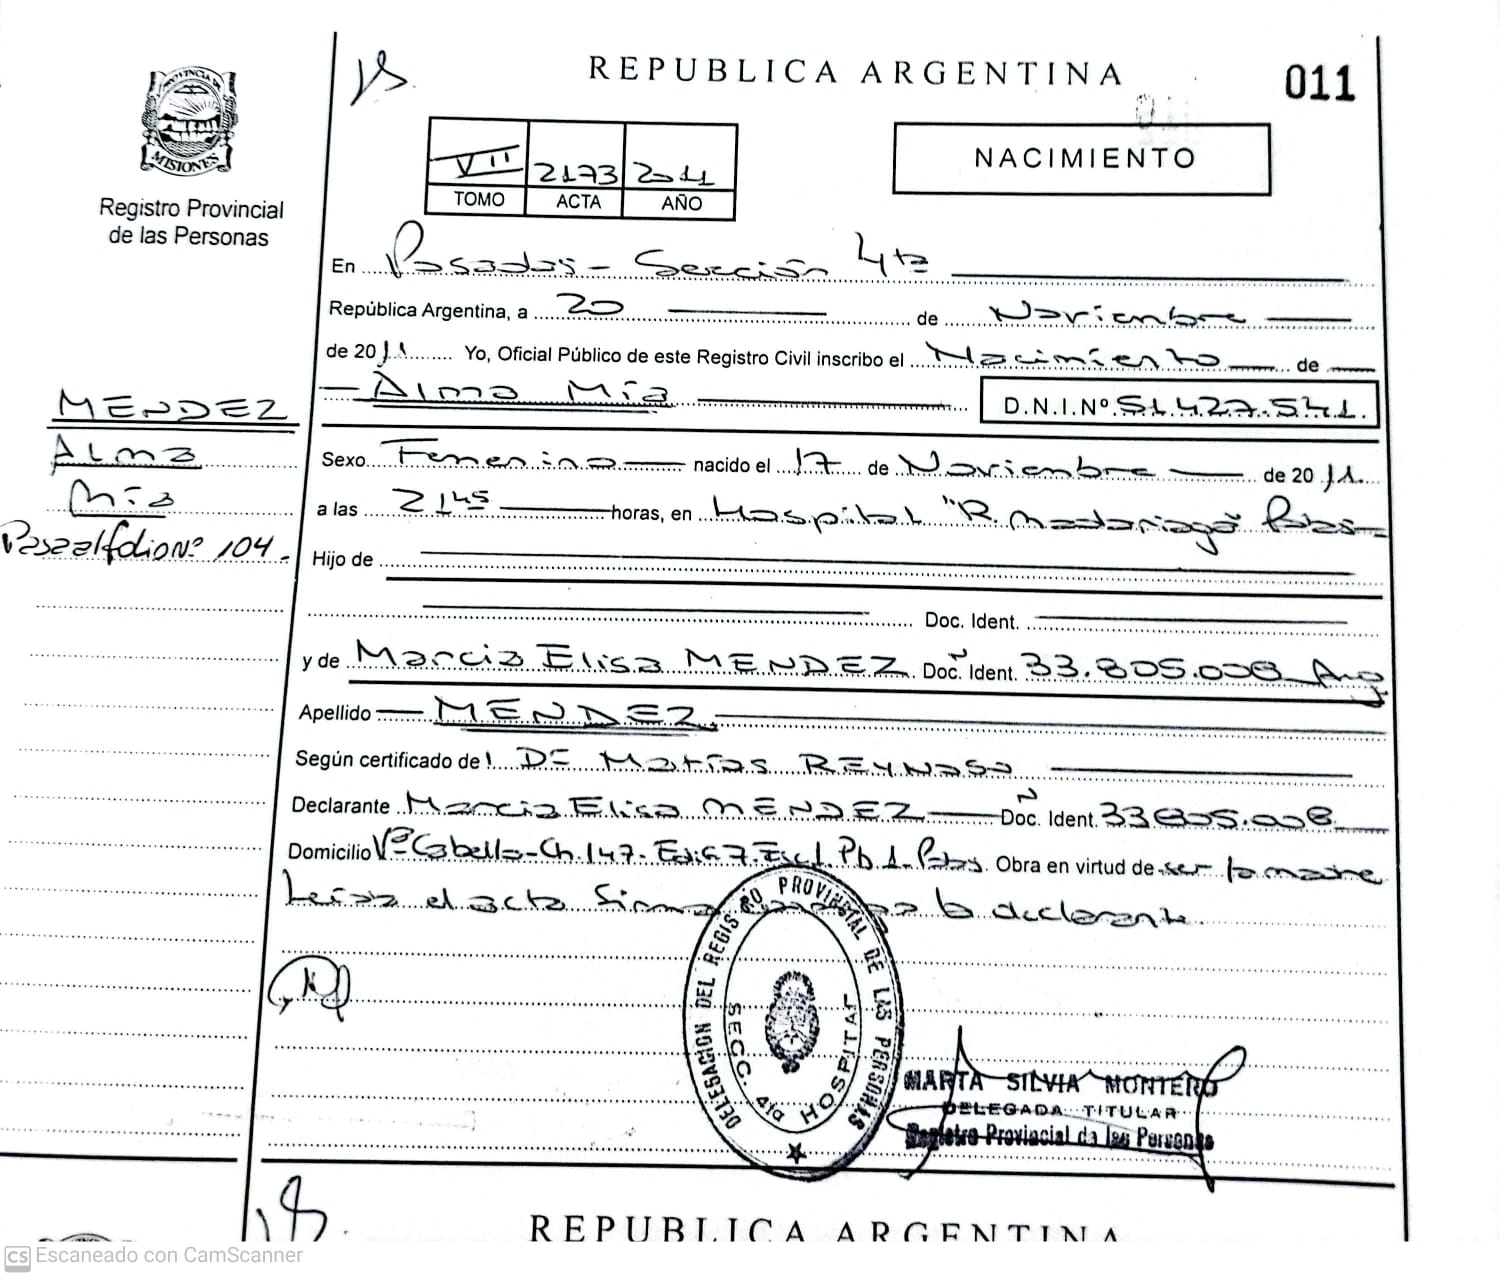 REPUBLICA ARGENTINA
011
PROVINCIA DE
MISIONES
Registro Provincial
de las Personas
NACIMIENTO
VII 2173 2011
TOMO ACTA AÑO
En Posadas - Sección 4ta
República Argentina, a 20 de Noviembre
de 2011 Yo, Oficial Público de este Registro Civil inscribo el Nacimiento de
Alma Mía D.N.I.Nº 51.427.541.
MENDEZ
Alma
Mía
Pasa al folio Nº 104.
Sexo Femenino nacido el 17 de Noviembre de 2011.
a las 21 45 horas, en Hospital "R. Madariaga" Pdas
Hijo de
Doc. Ident.
y de Marcia Elisa MENDEZ Doc. Ident. 33.805.008 Arg
Apellido MENDEZ
Según certificado de l Dr Matías REYNOSO
Declarante Marcia Elisa MENDEZ Doc. Ident. 33805.008
Domicilio Vº Cabello - Ch. 147 - Edif 7. Esc 1. Pb 1 - Pdas. Obra en virtud de ser la madre
Leída el acta firma la declarante.
DELEGACION DEL REGISTRO PROVINCIAL DE LAS PERSONAS
SECC. 4ta HOSPITAL
MARTA SILVIA MONTERO
DELEGADA TITULAR
Registro Provincial de las Personas
REPUBLICA ARGENTINA
CS Escaneado con CamScanner